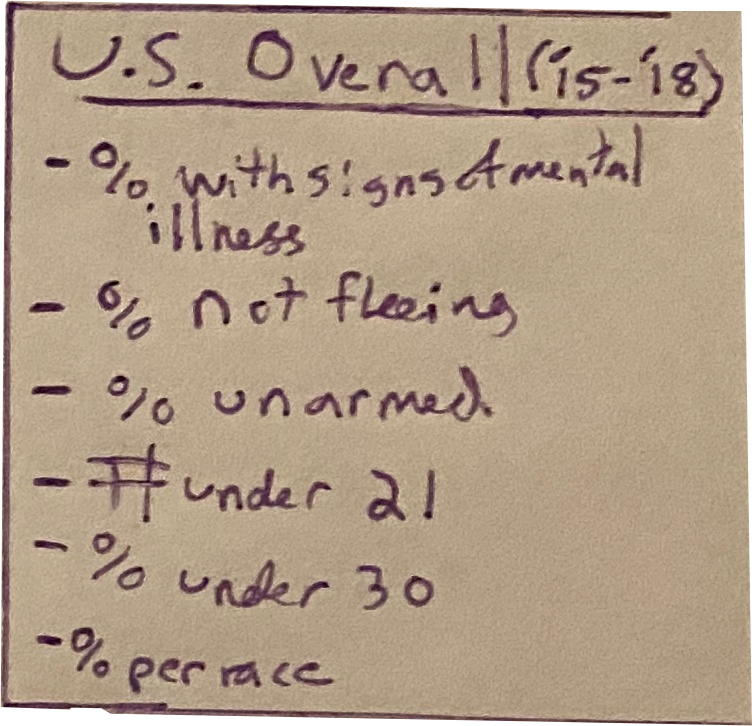 U.S. Overall ('15-'18)
- % with signs of mental
illness
- % not fleeing
- % unarmed.
- # under 21
- % under 30
- % per race